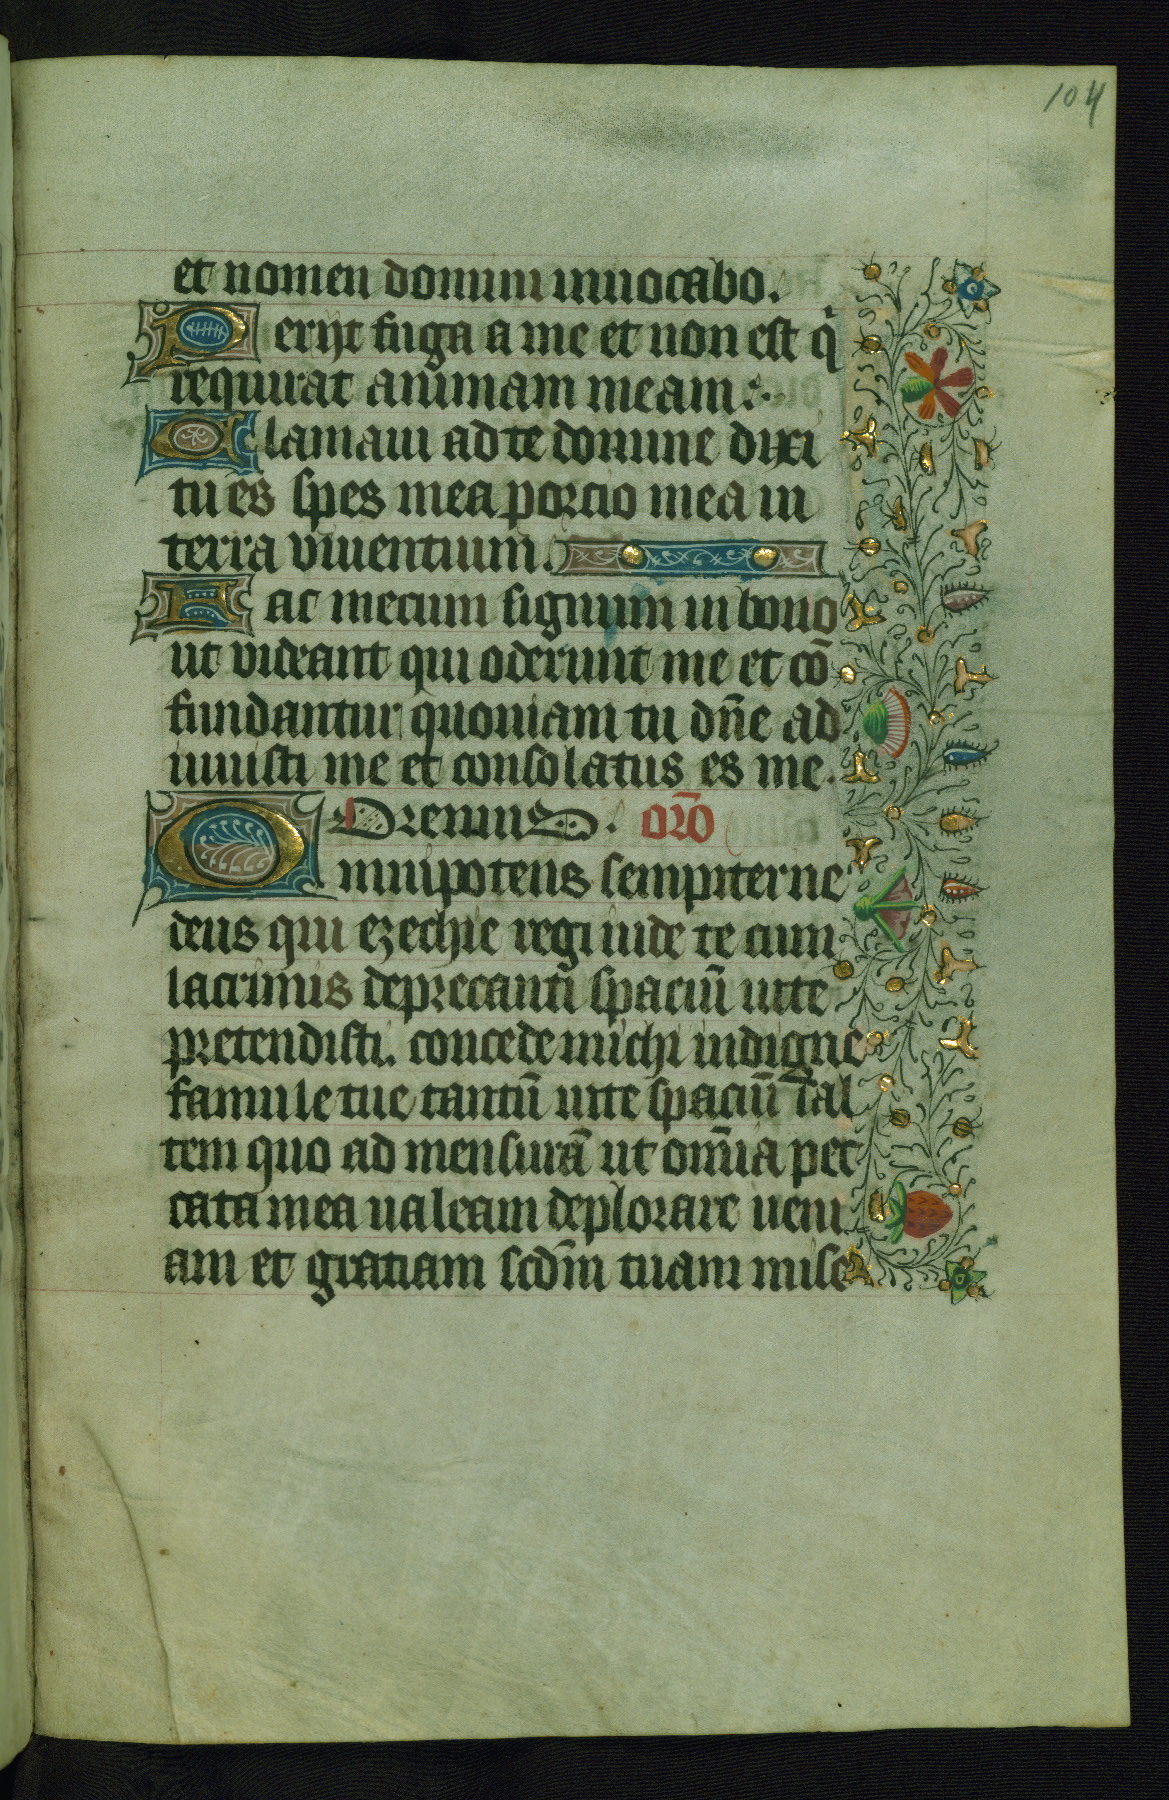 104
et nomen domini inuocabo.
Perijt fuga a me et non est qͥ
requirat animam meam.
Clamaui ad te domine dixi
tu es spes mea porcio mea in
terra viuentium.
Fac mecum signum in bono
ut videant qui oderunt me et cō
fundantur quoniam tu dn̄e ad
iuuisti me et consolatus es me.
Oremus. or̄o
Omnipotens sempiterne
deus qui ezechie regi iude te cum
lacrimis deprecanti spaciū uite
pretendisti. concede michi indigne
famule tue tantū uite spaciū sal
tem quo ad mensurā ut om̄ia pec
cata mea ualeam deplorare ueni
am et gratiam scd̄m tuam mise